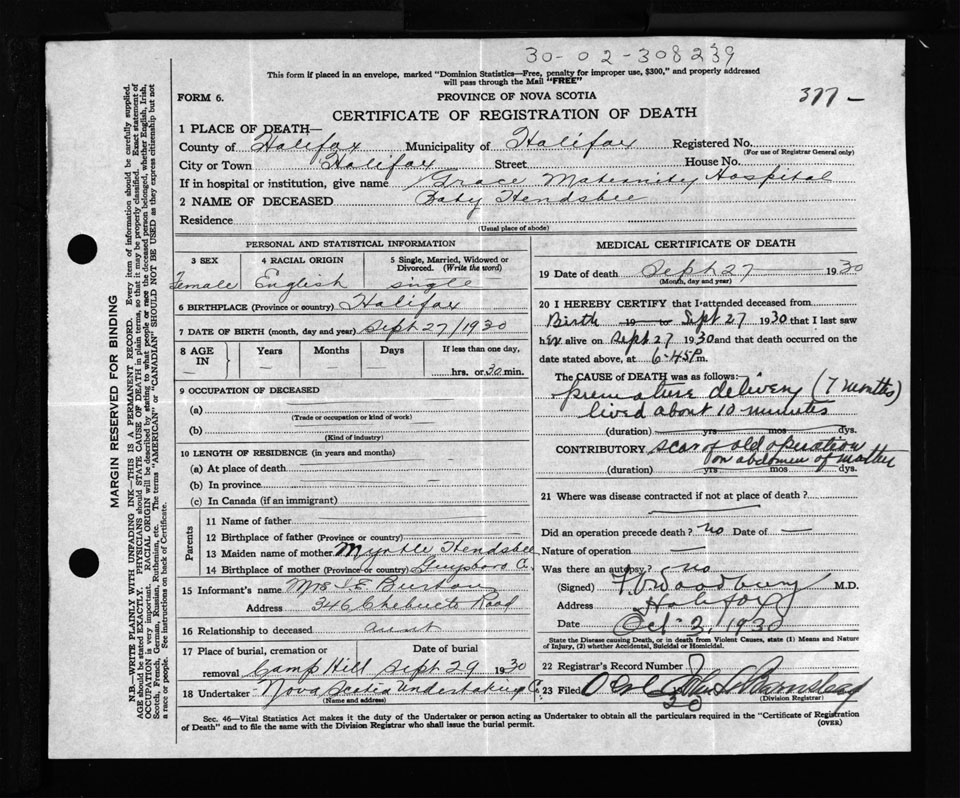 30-02-308239
This form if placed in an envelope, marked "Dominion Statistics—Free, penalty for improper use, $300," and properly addressed
will pass through the Mail "FREE"
377 —
FORM 6.
PROVINCE OF NOVA SCOTIA
CERTIFICATE OF REGISTRATION OF DEATH
1 PLACE OF DEATH—
County of Halifax Municipality of Halifax Registered No.
(For use of Registrar General only)
City or Town Halifax Street House No.
If in hospital or institution, give name Grace Maternity Hospital
2 NAME OF DECEASED Baby Hendsbee
Residence
(Usual place of abode)
PERSONAL AND STATISTICAL INFORMATION
3 SEX
4 RACIAL ORIGIN
5 Single, Married, Widowed or
Divorced. (Write the word)
Female English single
6 BIRTHPLACE (Province or country) Halifax
7 DATE OF BIRTH (month, day and year) Sept 27/1930
8 AGE IN
Years Months Days If less than one day,
— — — hrs. or 30 min.
9 OCCUPATION OF DECEASED
(a)
(Trade or occupation or kind of work)
(b)
(Kind of industry)
10 LENGTH OF RESIDENCE (in years and months)
(a) At place of death
(b) In province
(c) In Canada (if an immigrant)
Parents
11 Name of father
12 Birthplace of father (Province or country)
13 Maiden name of mother Myrtle Hendsbee
14 Birthplace of mother (Province or country) Guysboro C.
15 Informant's name Mrs I E
Address 346 Chebucto Road
16 Relationship to deceased aunt
17 Place of burial, cremation or Date of burial
removal Camp Hill Sept 29 1930
18 Undertaker Nova Scotia Undertaking C.
(Name and address)
MEDICAL CERTIFICATE OF DEATH
19 Date of death Sept 27 1930
(Month, day and year)
20 I HEREBY CERTIFY that I attended deceased from
Birth 19 to Sept 27 1930 that I last saw
her alive on Sept 27 1930 and that death occurred on the
date stated above, at 6-45 P m.
The CAUSE of DEATH was as follows:
premature delivery (7 months)
lived about 10 minutes
(duration) yrs mos dys.
CONTRIBUTORY scar of old operation
on abdomen of mother
(duration) yrs mos dys.
21 Where was disease contracted if not at place of death?
Did an operation precede death? no Date of —
Nature of operation —
Was there an autopsy? no
(Signed) Woodbury M.D.
Address Halifax
Date Oct 2, 1930
State the Disease causing Death, or in death from Violent Causes, state (1) Means and Nature
of Injury, (2) whether Accidental, Suicidal or Homicidal.
22 Registrar's Record Number
23 Filed
30
(Division Registrar)
Sec. 46—Vital Statistics Act makes it the duty of the Undertaker or person acting as Undertaker to obtain all the particulars required in the "Certificate of Registration
of Death" and to file the same with the Division Registrar who shall issue the burial permit.
(OVER)
MARGIN RESERVED FOR BINDING
N.B.—WRITE PLAINLY WITH UNFADING INK—THIS IS A PERMANENT RECORD. Every item of information should be carefully supplied.
AGE should be stated EXACTLY. PHYSICIANS should STATE CAUSE OF DEATH in plain terms, so that it may be properly classified. Exact statement of
OCCUPATION is very important. RACIAL ORIGIN will be described by stating to what people or race the deceased person belonged, whether English, Irish,
Scotch, French, German, Russian, Ruthenian, etc. The terms "AMERICAN" or "CANADIAN" SHOULD NOT BE USED as they express citizenship but not
a race or people. See instructions on back of Certificate.